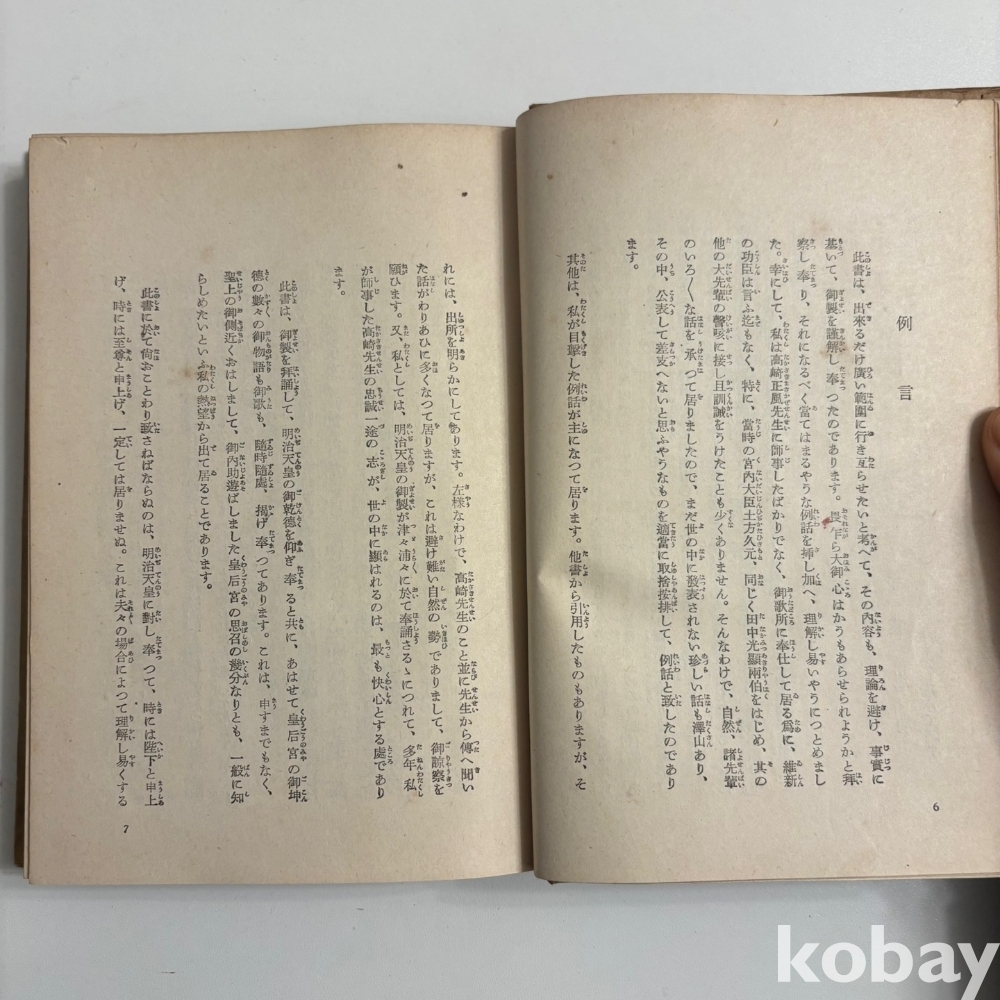 例言
此書は、出來るだけ廣い範圍に行き亙らせたいと考へて、その內容も、理論を避け、事實に
基いて、御製を謹解し奉つたのであります。畏乍ら大御心はかうもあらせられようかと拜
察し奉り、それになるべく當てはまるやうな例話を挿し加へ、理解し易いやうにつとめまし
た。幸にして、私は高崎正風先生に師事したばかりでなく、御歌所に奉仕して居る爲に、維新
の功臣は言ふ迄もなく、特に、當時の宮內大臣土方久元、同じく田中光顯兩伯をはじめ、其の
他の大先輩の謦咳に接し且訓誡をうけたことも少くありません。そんなわけで、自然、諸先輩
のいろ〱な話を承つて居りましたので、まだ世の中に發表されない珍しい話も澤山あり、
その中、公表して差支へないと思ふやうなものを適當に取捨按排して、例話と致したのであり
ます。
其他は、私が目擊した例話が主になつて居ります。他書から引用したものもありますが、そ
6
れには、出所を明らかにしてあります。左樣なわけで、高崎先生のこと並に先生から傳へ聞い
た話がわりあひに多くなつて居りますが、これは避け難い自然の勢でありまして、御諒察を
願ひます。又、私としては、明治天皇の御製が津々浦々に於て奉誦さるゝにつれて、多年、私
が師事した高崎先生の忠誠一途の志が、世の中に顯はれるのは、最も快心とする處であり
ます。
此書は、御製を拜誦して、明治天皇の御乾德を仰ぎ奉ると共に、あはせて皇后宮の御坤
德の數々の御物語も御歌も、隨時隨處、揭げ奉つてあります。これは、申すまでもなく、
聖上の御側近くおはしまして、御內助遊ばしました皇后宮の思召の幾分なりとも、一般に知
らしめたいといふ私の熱望から出て居ることであります。
此書に於て尙おことわり致さねばならぬのは、明治天皇に對し奉つて、時には陛下と申上
げ、時には至尊と申上げ、一定しては居りませぬ。これは夫々の場合によつて理解し易くする
7
kobay